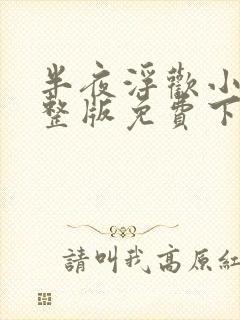 半夜浮歡小
整版免費下
請叫我高原紅